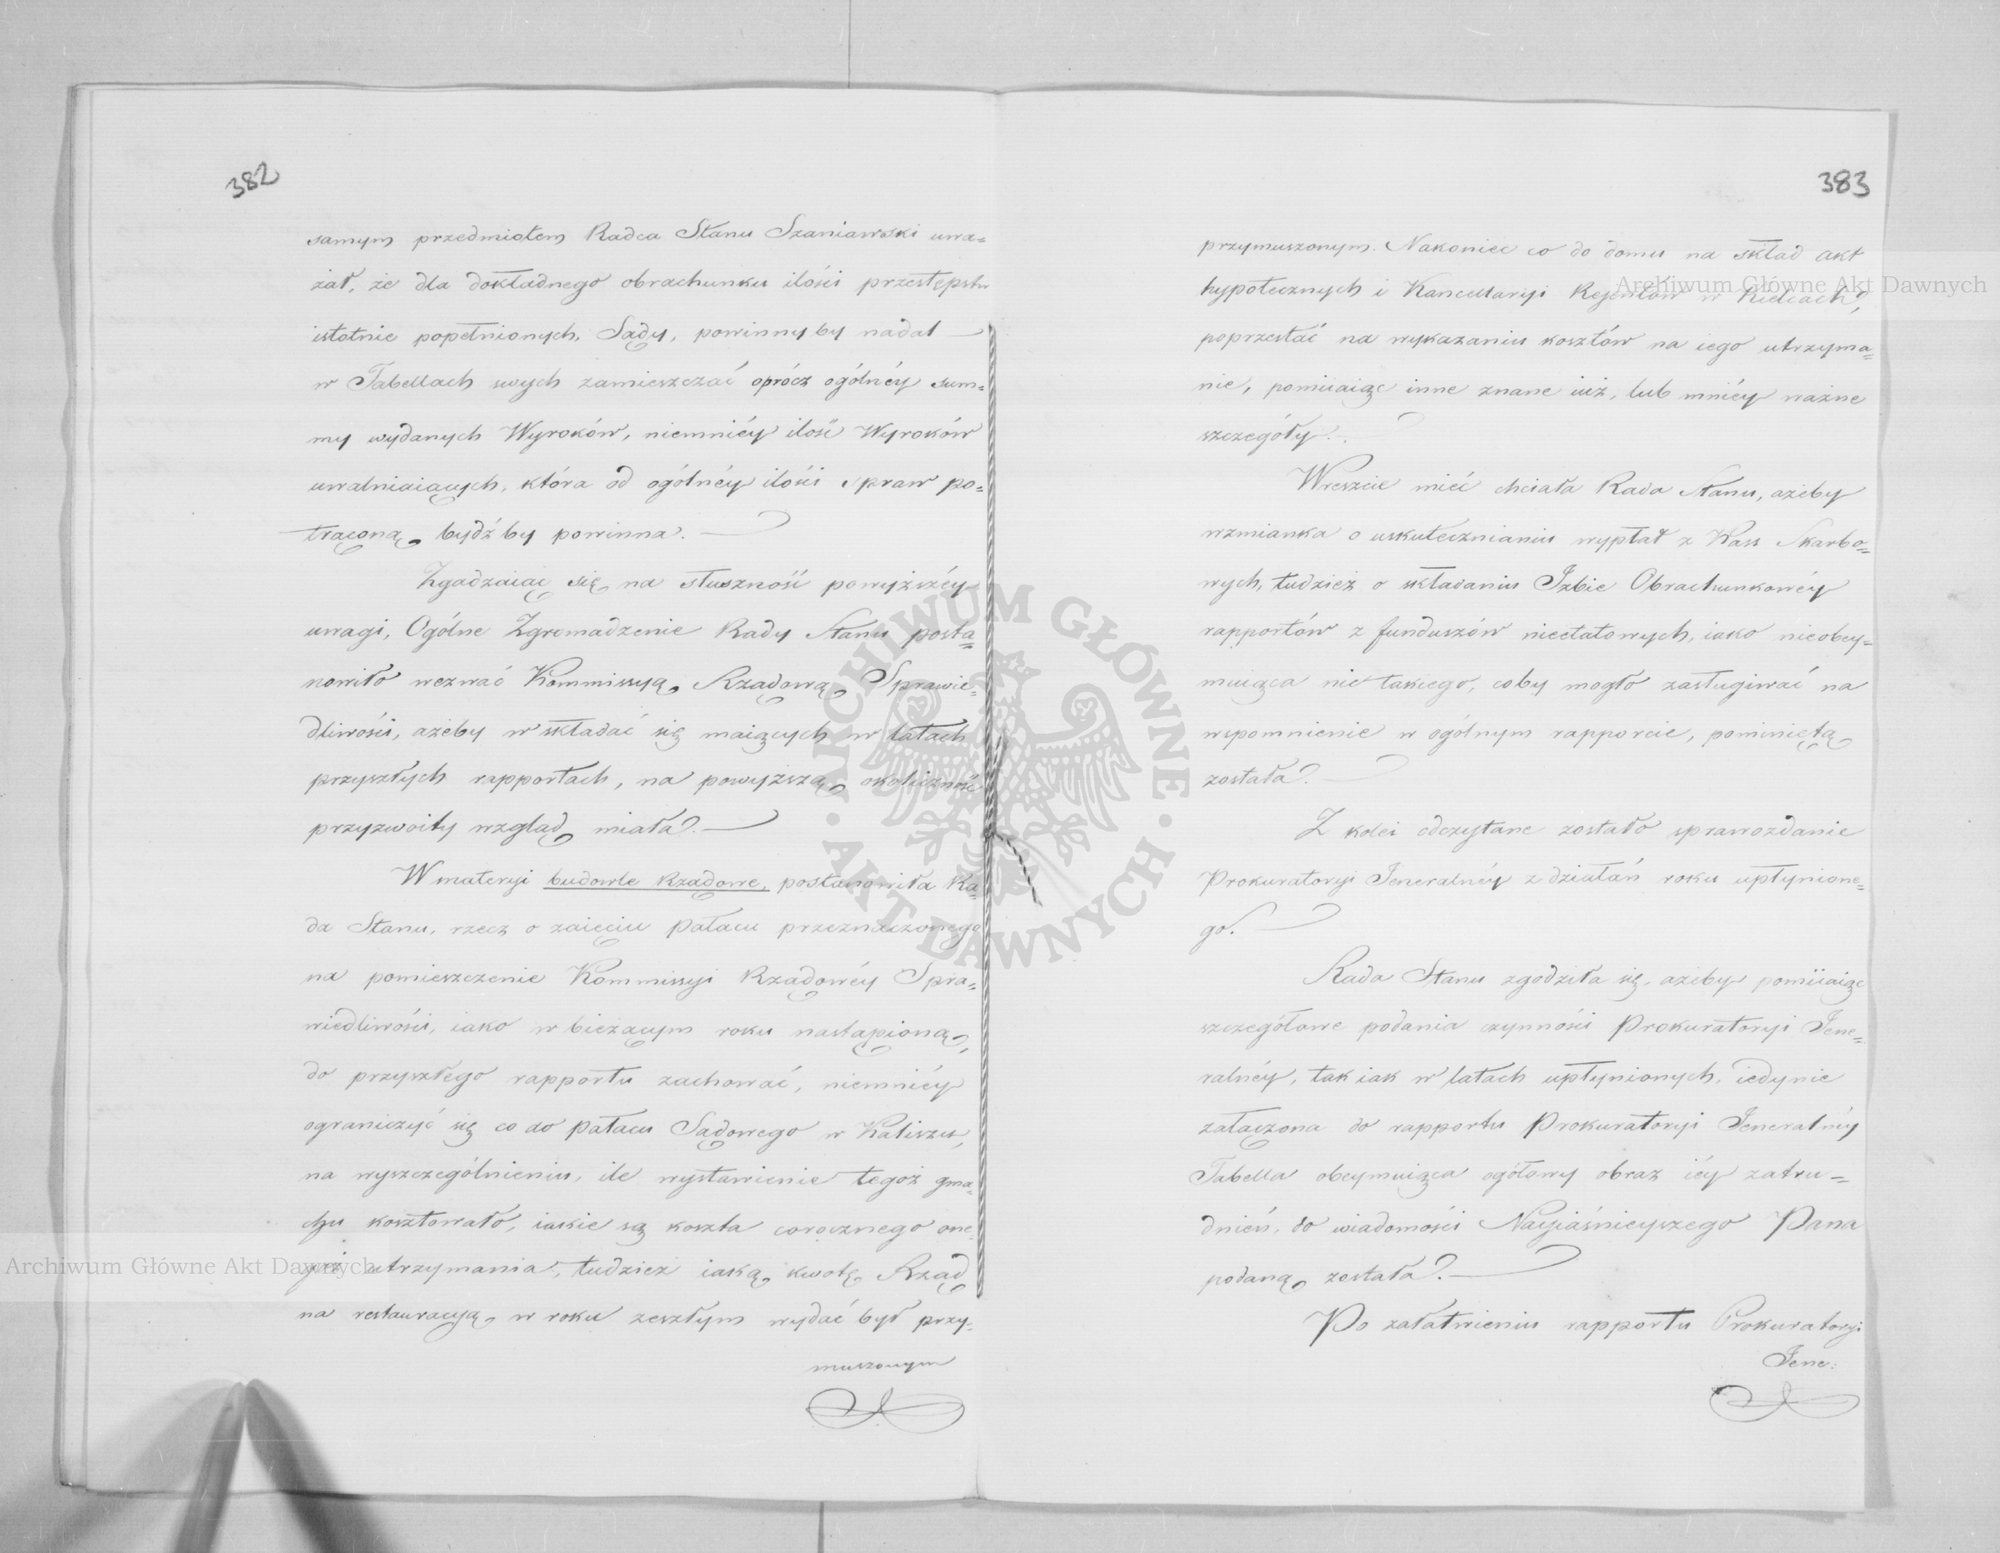 382
samym przedmiotem Radca Stanu Szaniawski uwa=
żał, że dla dokładnego obrachunku ilości przestępstw
istotnie popełnionych, Sądy, powinnyby nadal
w Tabellach swych zamieszczać oprócz ogólnéy sum=
my wydanych Wyroków, niemniéy ilość Wyroków
uwalniaiących, która od ogólnéy ilości spraw po=
trąconą bydźby powinna.
Zgadzaiąc się na słuszność powyższéy
uwagi, Ogólne Zgromadzenie Rady Stanu posta=
nowiło wezwać Kommissyą Rządową Sprawie=
dliwości, ażeby w składać się maiących w latach
przyszłych rapportach, na powyższą okoliczność
przyzwoity wzgląd miała.
W materyi budowle Rządowe, postanowiła Ra=
da Stanu, rzecz o zaięciu Pałacu przeznaczonego
na pomieszczenie Kommissyi Rządowéy Spra=
wiedliwości, iako w bieżącym roku nastąpioną,
do przyszłego rapportu zachować, niemniéy
ograniczyć się co do Pałacu Sądowego w Kaliszu,
na wyszczególnieniu, ile wystawienie tegoż gma=
chu kosztowało, iakie są koszta corocznego one=
goż utrzymania, tudzież iaką kwotę Rząd
na restauracyą w roku zeszłym wydać był przy=
muszonym
383
przymuszonym. Nakoniec co do domu na skład akt
hypotecznych i Kancellaryi Rejentów w Kielcach,
poprzestać na wykazaniu kosztów na iego utrzyma=
nie, pomiiaiąc inne znane iuż, lub mniéy ważne
szczegóły.
Wreszcie mieć chciała Rada Stanu, ażeby
wzmianka o uskutecznianiu wypłat z Kass Skarbo=
wych, tudzież o składaniu Izbie Obrachunkowéy
rapportów z funduszów nieetatowych, iako nieobey=
muiąca nic takiego, coby mogło zasługiwać na
wspomnienie w ogólnym rapporcie, pominiętą
została.
Z kolei odczytane zostało sprawozdanie
Prokuratoryi Jeneralnéy z działań roku upłynione=
go.
Rada Stanu zgodziła się, ażeby pomiiaiąc
szczegółowe podania czynności Prokuratoryi Jene=
ralnéy, tak iak w latach upłynionych, iedynie
załączona do rapportu Prokuratoryi Jeneralnéy
Tabella obeymuiąca ogółowy obraz iéy zatru=
dnień, do wiadomości Nayiaśnieyszego Pana
podaną została.
Po załatwieniu rapportu Prokuratoryi
Jene:
Archiwum Główne Akt Dawnych
Archiwum Główne Akt Dawnych
ARCHIWUM GŁÓWNE · AKT DAWNYCH ·